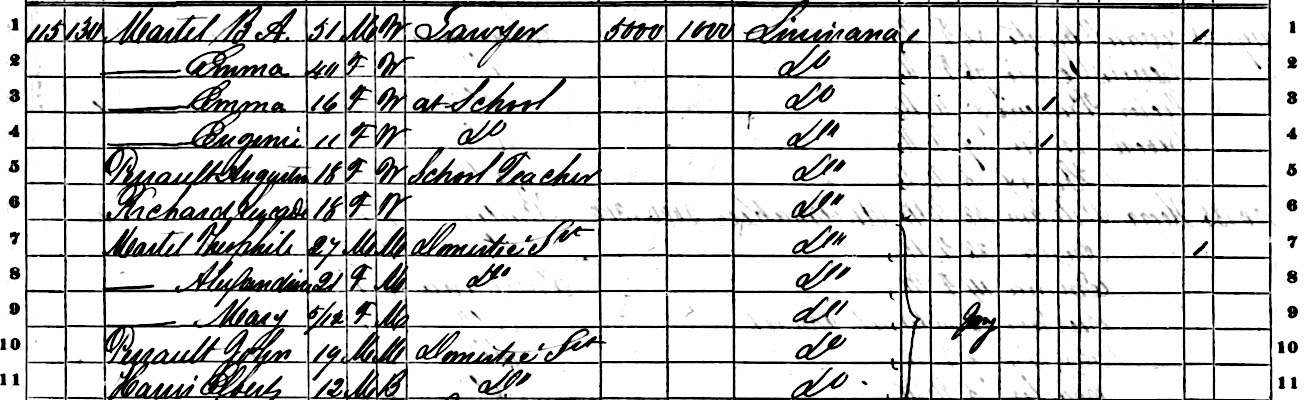 1 115 130 Martel B A. 51 M W Lawyer 5000 1000 Louisiana 1 1 1
2 —— Emma 40 F W Do 2
3 —— Emma 16 F W at School Do 1 3
4 —— Eugenie 11 F W Do Do 1 4
5 18 F W School Teacher Do 5
6 Richard 18 F W Do 6
7 Martel Theophile 27 M M Domestic Svt Do 1 7
8 —— 21 F M Do Do 8
9 —— Mary 5/12 F M Do 9
10 John 19 M M Domestic Svt Do 10
11 Harris Elbert 12 M B Do Do 11